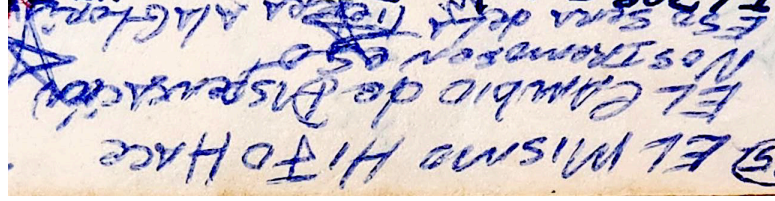 5) EL MISMO HIJO HACE
EL CAMBIO de DISPENSACIÓN
eso
ESO SERA de LA TIERRA A LA GLORIA